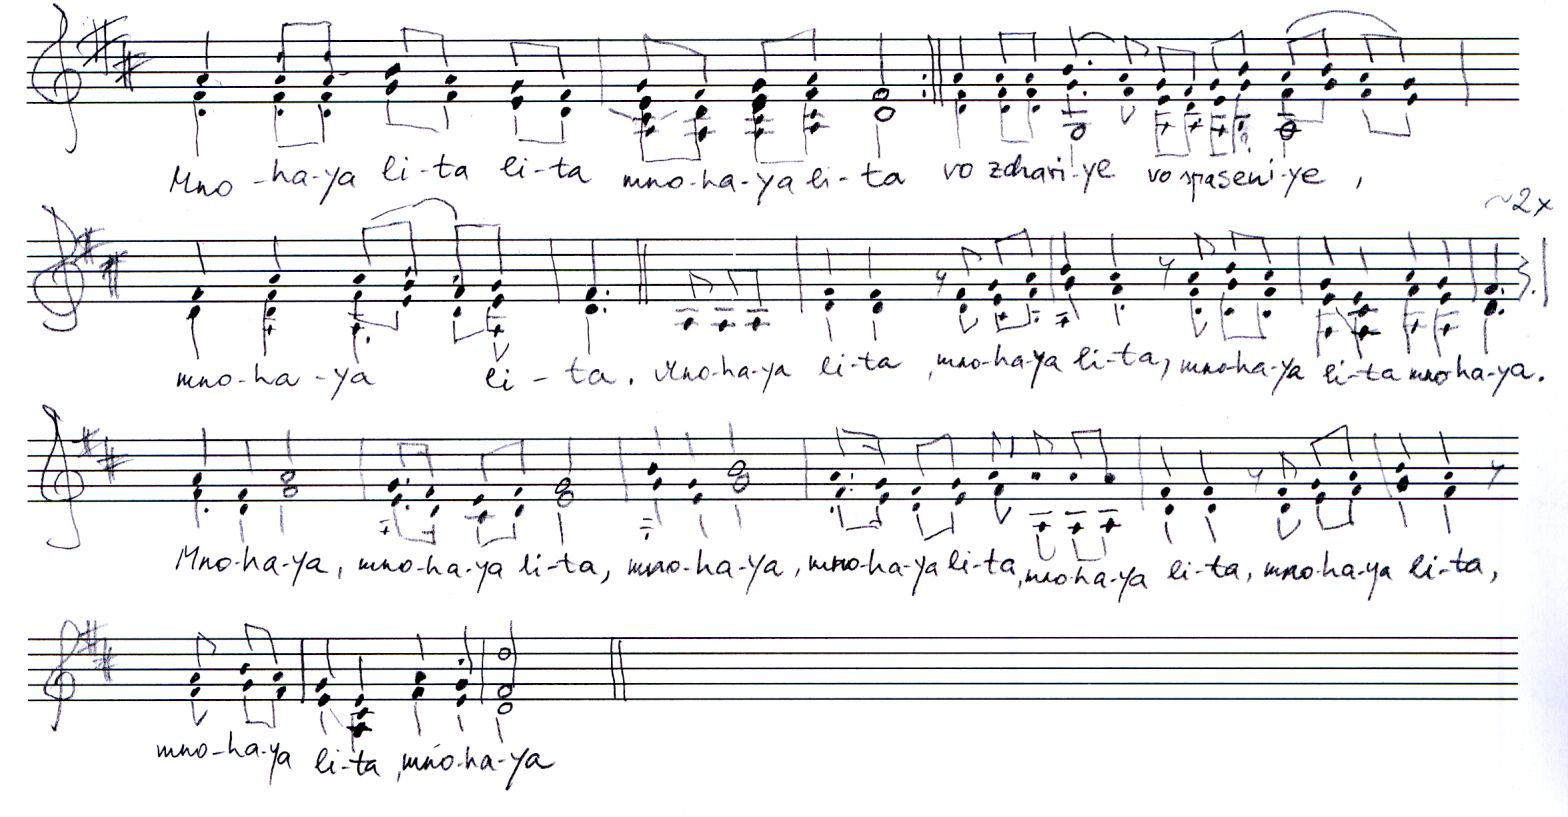 Mno-ha-ya li-ta li-ta mno-ha-ya li-ta vo zdravi-ye vo spaseni-ye,
~2x
mno-ha-ya li-ta. Mno-ha-ya li-ta, mno-ha-ya li-ta, mno-ha-ya li-ta mno-ha-ya.
Mno-ha-ya, mno-ha-ya li-ta, mno-ha-ya, mno-ha-ya li-ta, mno-ha-ya li-ta, mno-ha-ya li-ta,
mno-ha-ya li-ta, mno-ha-ya